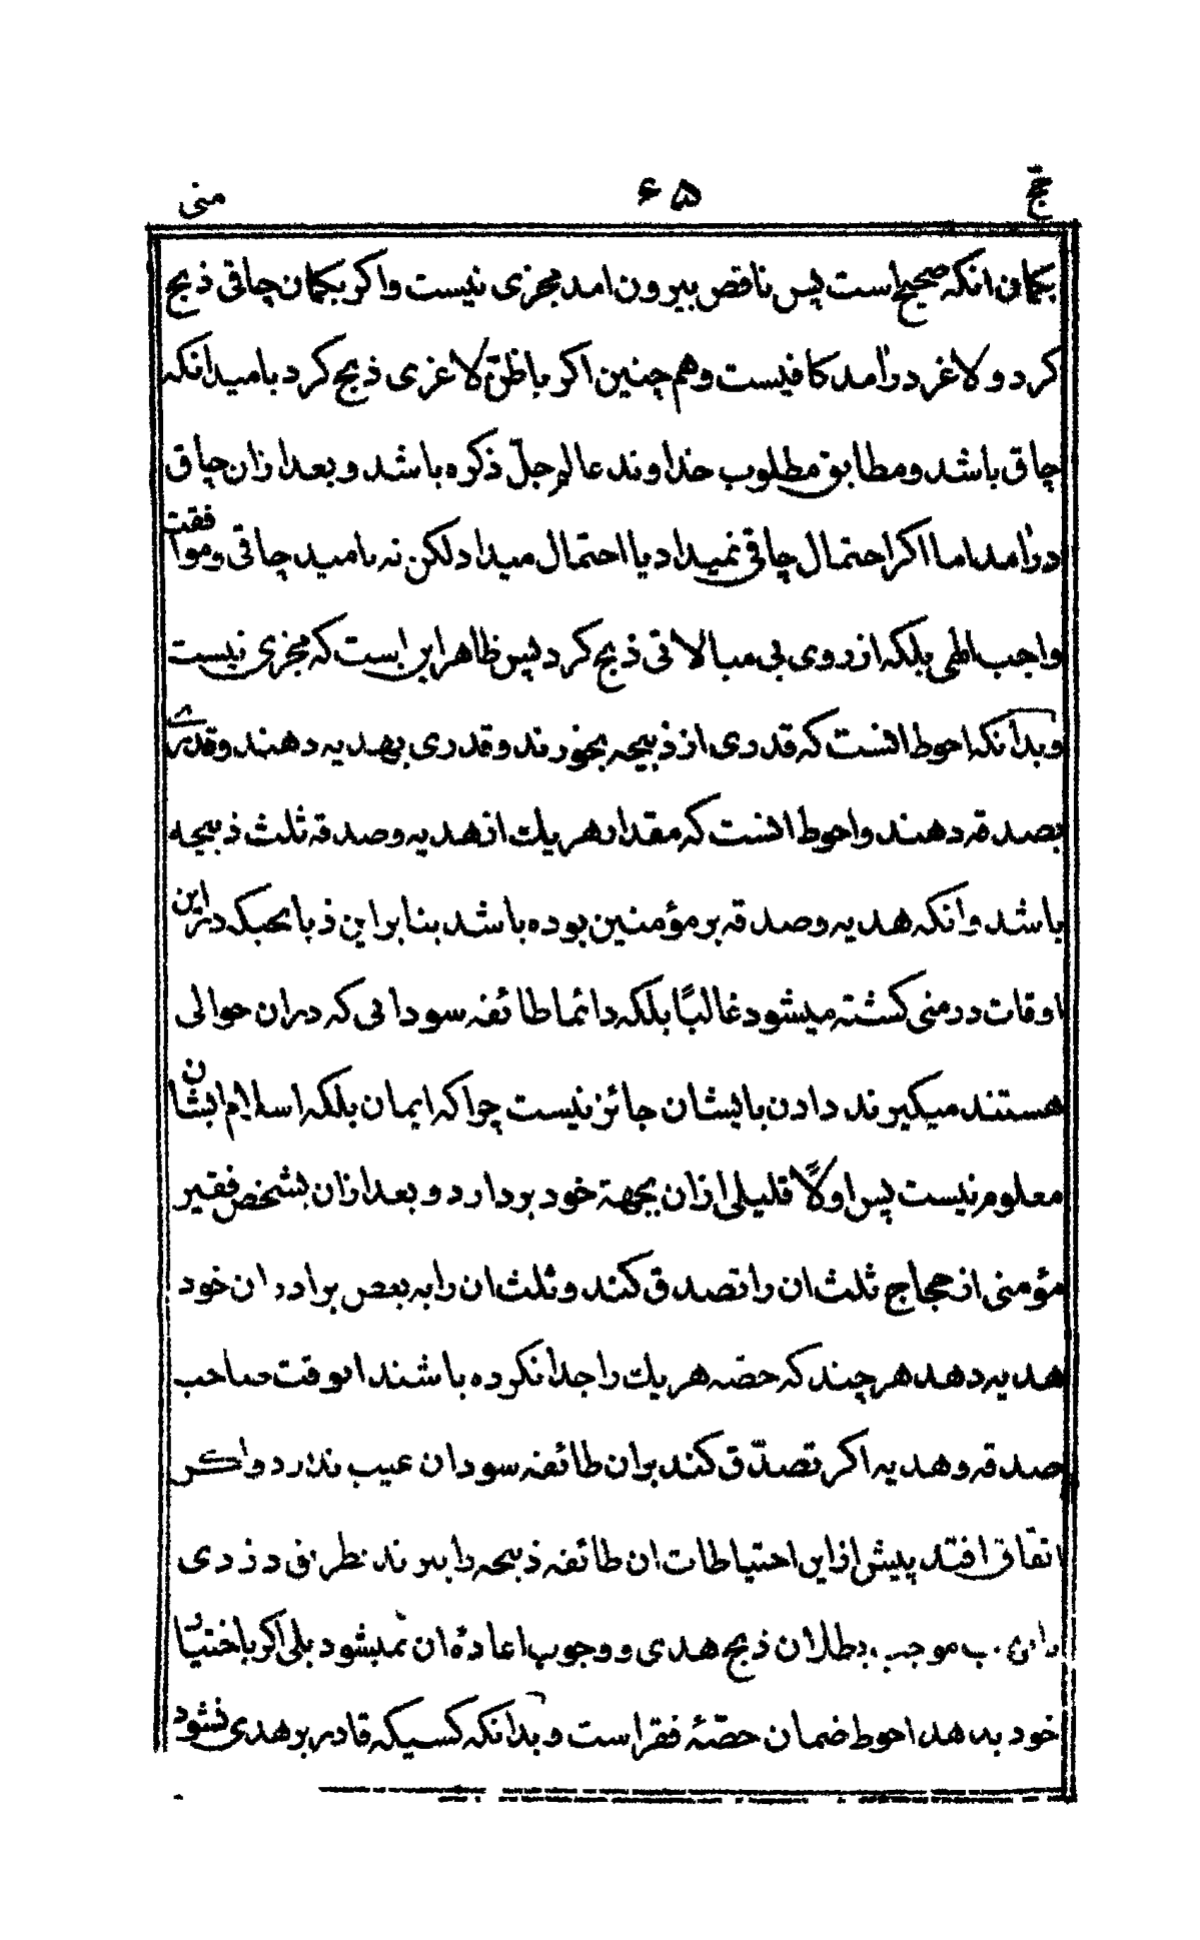 حج ۶۵ منی
بکمان انکه صحیح است پس ناقص بیرون امد مجزی نیست واکر بکمان چاقی ذبح
کرد ولاغر درامد کافیست وهم چنین اکر باظنّ لاغری ذبح کرد بامید انکه
چاق باشد ومطابق مطلوب خداوند عالم جلّ ذکره باشد وبعد ازان چاق
درامد اما اکر احتمال چاقی نمیداد یا احتمال میداد لکن نه بامید چاقی وموافقت
واجب الهی بلکه از روی بی مبالاتی ذبح کرد پس ظاهر این است که مجزی نیست
وبدانکه احوط انست که قدری از ذبیحه بخورند وقدری بهدیه دهند وقدری
بصدقه دهند واحوط انست که مقدار هریك از هدیه وصدقه ثلث ذبیحه
باشد وانکه هدیه وصدقه بر مؤمنین بوده باشد بنابر این ذبایحیکه در این
اوقات در منی کشته میشود غالبًا بلکه دائما طائفه سودانی که در ان حوالی
هستند میکیرند دادن بایشان جائز نیست چراکه ایمان بلکه اسلام ایشان
معلوم نیست پس اولًا قلیلی ازان بجهة خود بردارد وبعد ازان بشخص فقیر
مؤمنی از حجاج ثلث ان را تصدق کند وثلث ان را به بعض برادران خود
هدیه دهد هرچند که حصّه هریك را جدا نکرده باشند انوقت صاحب
صدقه وهدیه اکر تصدّق کند بران طائفه سودان عیب ندارد واکر
اتفاق افتد پیش از این احتیاطات ان طائفه ذبیحه را ببرند بطریق دزدی
موجب بطلان ذبح هدی ووجوب اعادهٔ ان نمیشود بلی اکر باختیار
خود بدهد احوط ضمان حصّهٔ فقراست وبدانکه کسیکه قادر بر هدی نشود